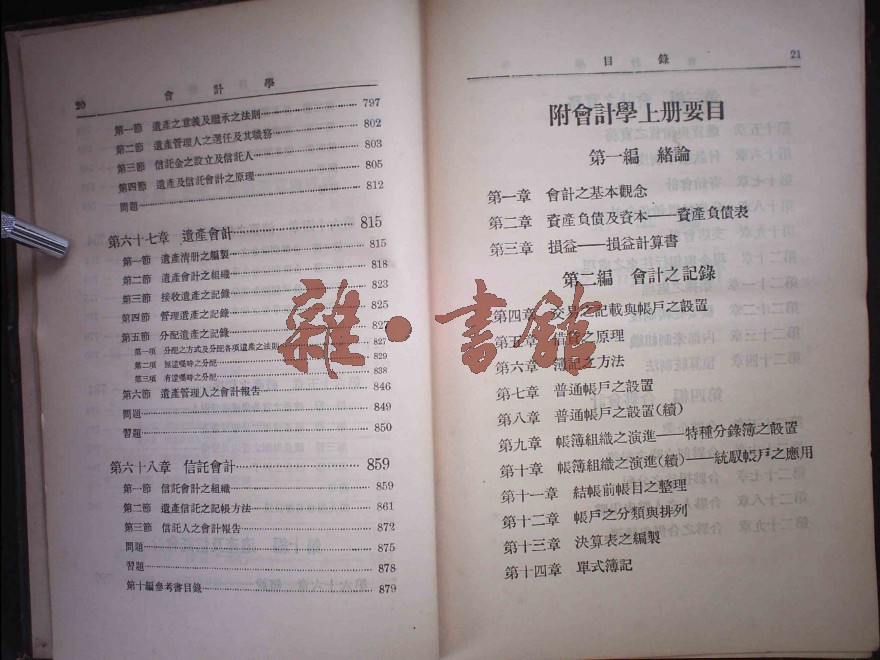 20 會計學
第一節 遺產之意義及繼承之法則 797
第二節 遺產管理人之選任及其職務 802
第三節 信託金之設立及信託人 803
第四節 遺產及信託會計之原理 805
問題 812
第六十七章 遺產會計 815
第一節 遺產淸册之編製 815
第二節 遺產會計之組織 818
第三節 接收遺產之記錄 823
第四節 管理遺產之記錄 825
第五節 分配遺產之記錄 827
第一項 分配之方式及分配各項遺產之法則 827
第二項 無遺囑時之分配 829
第三項 有遺囑時之分配 838
第六節 遺產管理人之會計報告 846
問題 849
習題 850
第六十八章 信託會計 859
第一節 信託會計之組織 859
第二節 遺產信託之記帳方法 861
第三節 信託人之會計報告 872
問題 875
習題 878
第十編參考書目錄 879
目錄 21
附會計學上册要目
第一編 緒論
第一章 會計之基本觀念
第二章 資產負債及資本——資產負債表
第三章 損益——損益計算書
第二編 會計之記錄
第四章 交易之記載與帳戶之設置
第五章 借貸之原理
第六章 簿記之方法
第七章 普通帳戶之設置
第八章 普通帳戶之設置(續)
第九章 帳簿組織之演進——特種分錄簿之設置
第十章 帳簿組織之演進(續)——統馭帳戶之應用
第十一章 結帳前帳目之整理
第十二章 帳戶之分類與排列
第十三章 決算表之編製
第十四章 單式簿記
雜·書館